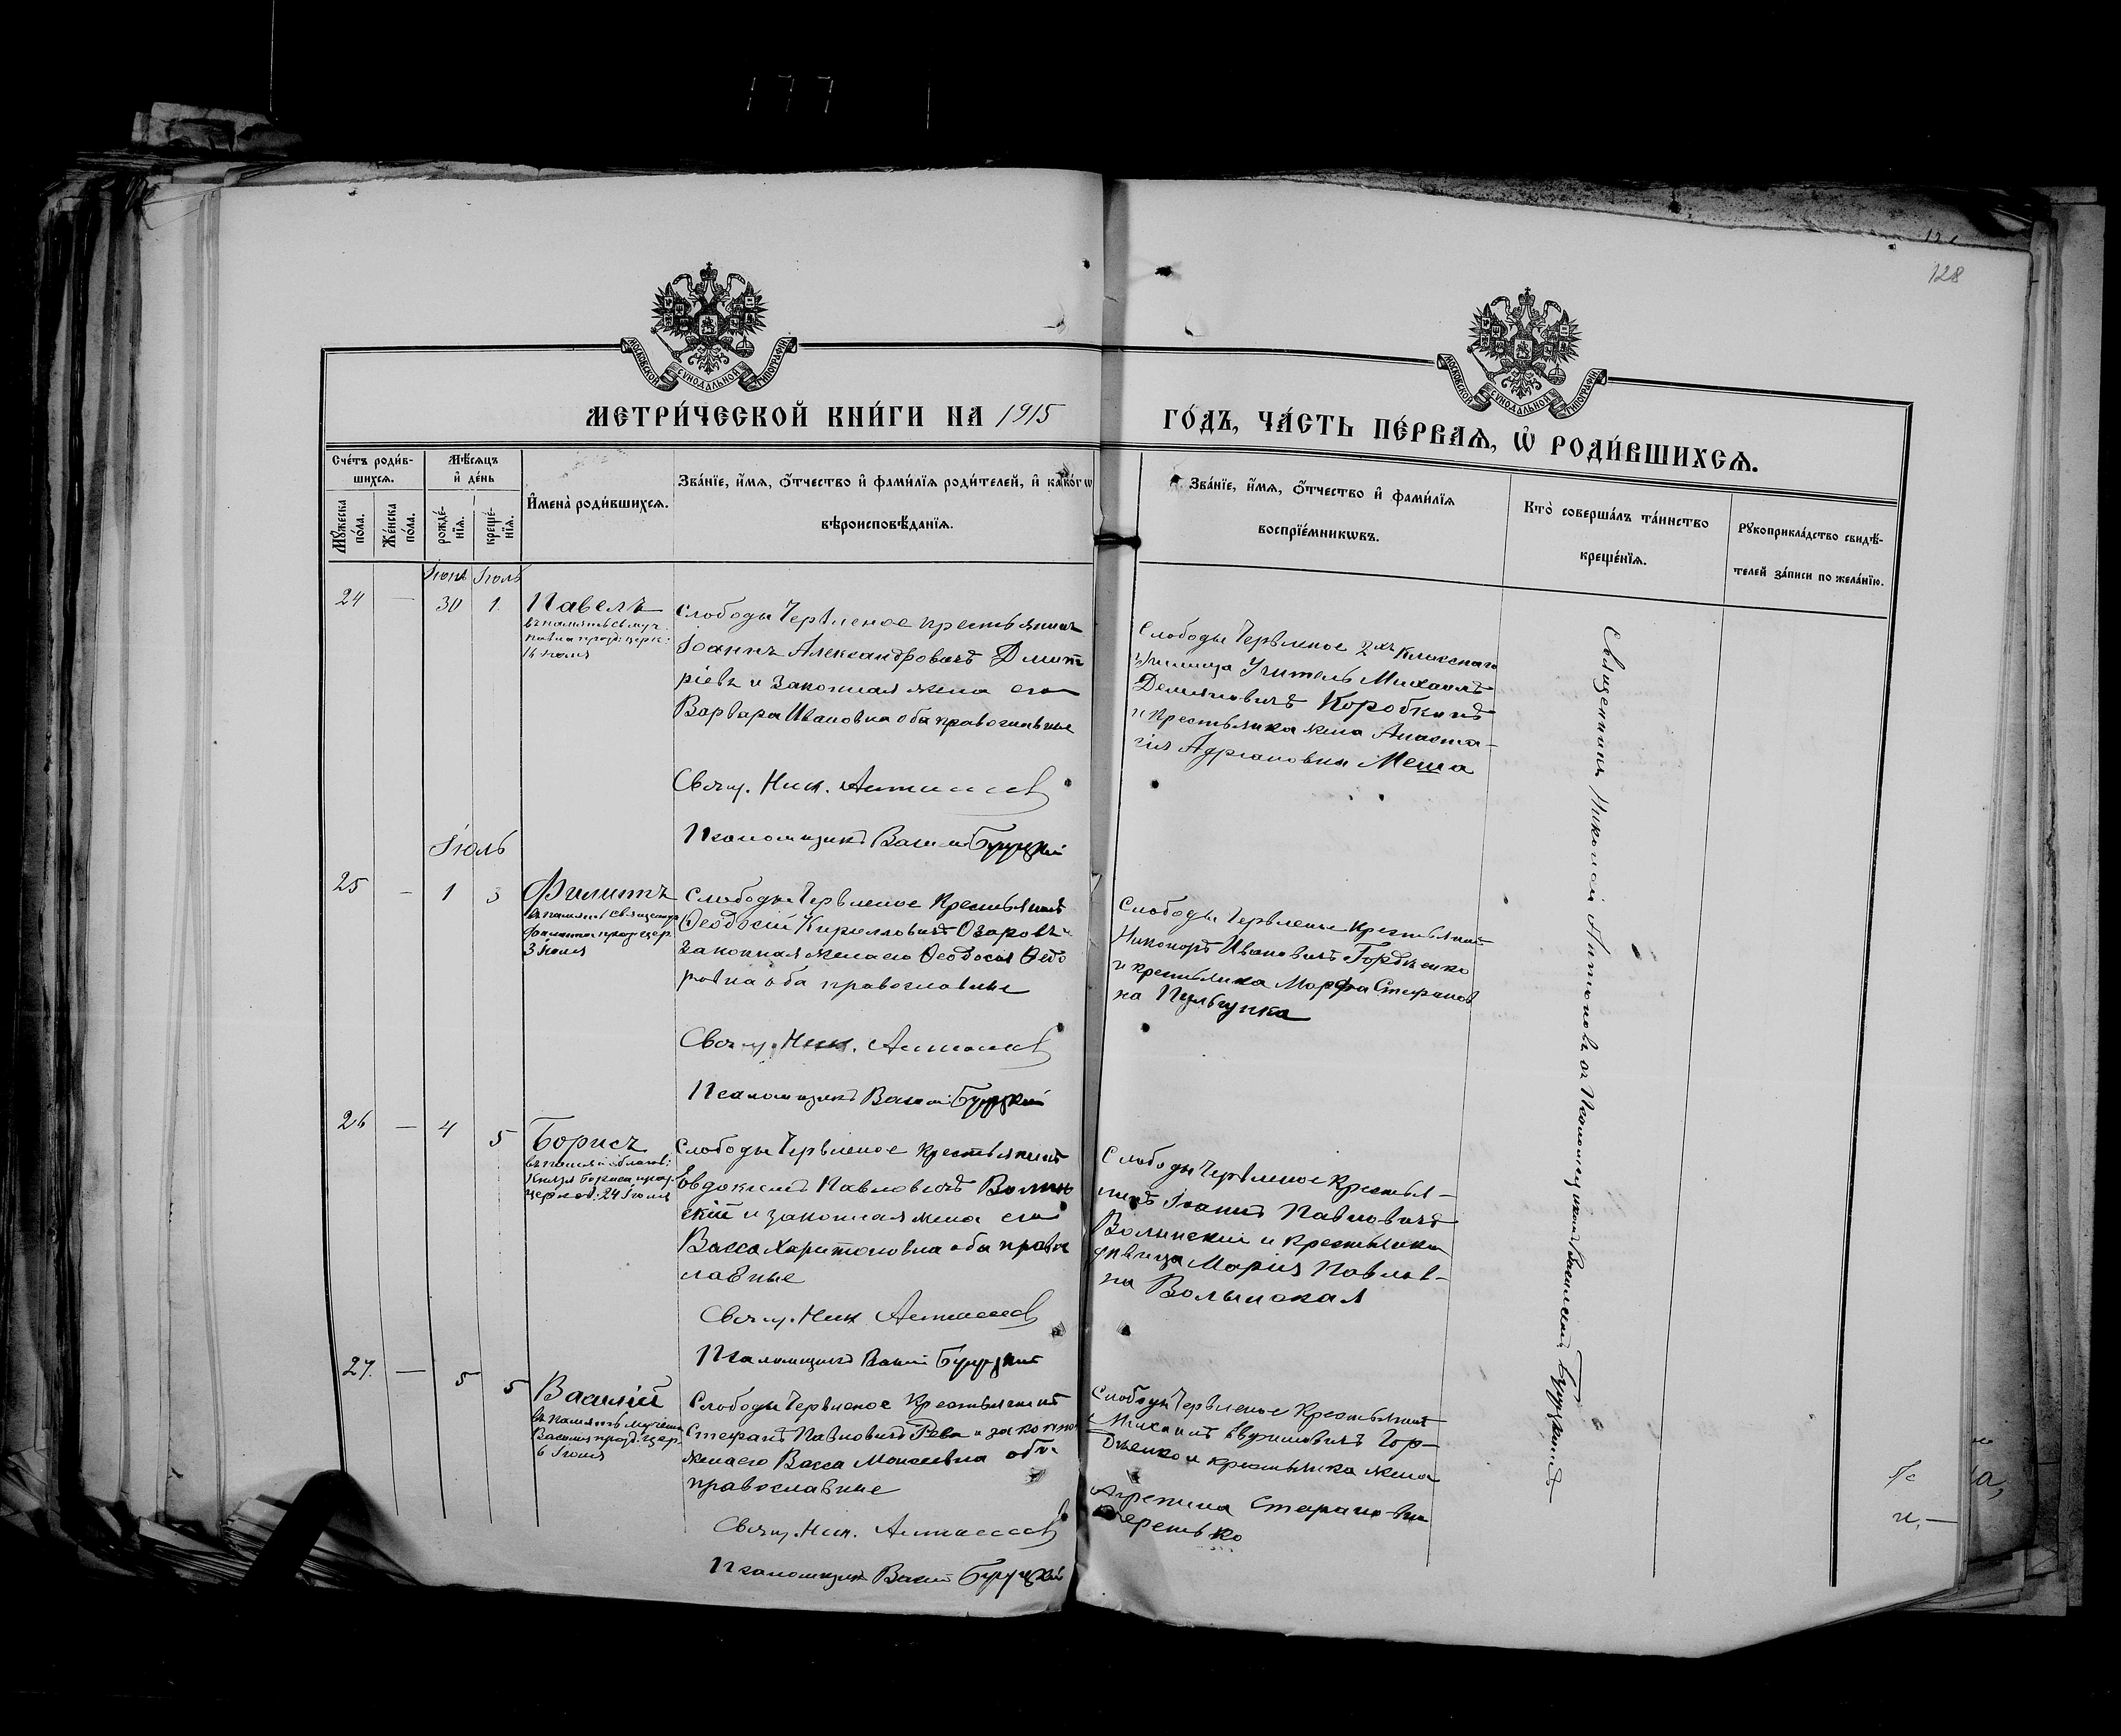 177
128
МОСКОВСКОЙ СѴНОДАЛЬНОЙ ТИПОГРАФІИ
МОСКОВСКОЙ СѴНОДАЛЬНОЙ ТИПОГРАФІИ
МЕТРИ́ЧЕСКОЙ КНИ́ГИ НА 1915
ГО́ДЪ, ЧА́СТЬ ПЕ́РВАѦ, Ѡ҆ РОДИ́ВШИХСѦ.
Сче́тъ роди́в-
шихсѧ.
Мꙋ́жеска
по́ла.
Же́нска
по́ла.
Мѣ́сѧцъ
и҆ де́нь
рожде́-
нїѧ.
креще́-
нїѧ.
И҆мена̀ роди́вшихсѧ.
Зва́нїе, и҆́мѧ, ѻ҆́тчество и҆ фами́лїѧ роди́телей, и҆ како́гѡ
вѣроисповѣ́данїѧ.
Зва́нїе, и҆́мѧ, ѻ҆́тчество и҆ фами́лїѧ
воспрїе́мникѡвъ.
Кто̀ соверша́лъ та́инство
креще́нїѧ.
Рꙋкоприкла́дство свидѣ́-
телей за́писи по жела́нїю.
Іюнь Іюль
24 — 30 1
Павелъ
въ память св. муч.
Павла празд: церк:
16 Іюля
Слободы Червленое крестьянинъ
Іоаннъ Александровичъ Дмит
ріевъ и законная жена его
Варвара Ивановна оба православные
Свящ. Ник. Антоновъ
Псаломщикъ Васи
Слободы Червленое 2хъ Класснаго
училища Учитель Михаилъ
Демьяновичъ Коробкинъ
и Крестьянка жена Анаста-
сія Адріановна Меша
Священникъ Николай Антоновъ съ Псаломщикомъ
Іюль
25 — 1 3
Филиппъ
въ память
празд: цер.
3 Іюля
Слободы Червленое Крестьянинъ
Ѳеодосій Кирилловичъ Озаровъ и
законная жена его Ѳеодосія Ѳедо
ровна оба православные
Свящ. Ник. Антоновъ
Псаломщикъ
Слободы Червленое Крестьянинъ
Никоноръ Ивановичъ Гордѣенко
и крестьянка Марфа Стефанов
на
26 — 4 5
Борисъ
въ память благов:
Князя Бориса празд.
церков: 24 Іюля
Слободы Червленое Крестьянинъ
Евдокимъ Павловичъ Волын
скій и законная жена его
Васса Харитоновна оба право
славные
Свящ. Ник. Антоновъ
Псаломщикъ
Слободы Червленое Крестья-
нинъ Іоаннъ Павловичъ
Волынскій и крестьянка
дѣвица Марія Павлов-
на Волынская
27. — 5 5
Василій
въ память мученика
Василія празд: цер.
6 Іюля
Слободы Червленое Крестьянинъ
Стефанъ Павловичъ Рева и законная
жена его Васса Моисеевна оба
православные
Свящ. Ник. Антоновъ
Псаломщикъ
Слободы Червленое Крестьянинъ
Михаилъ Гор-
дѣенко и крестьянка жена
Агрепина Стефановна